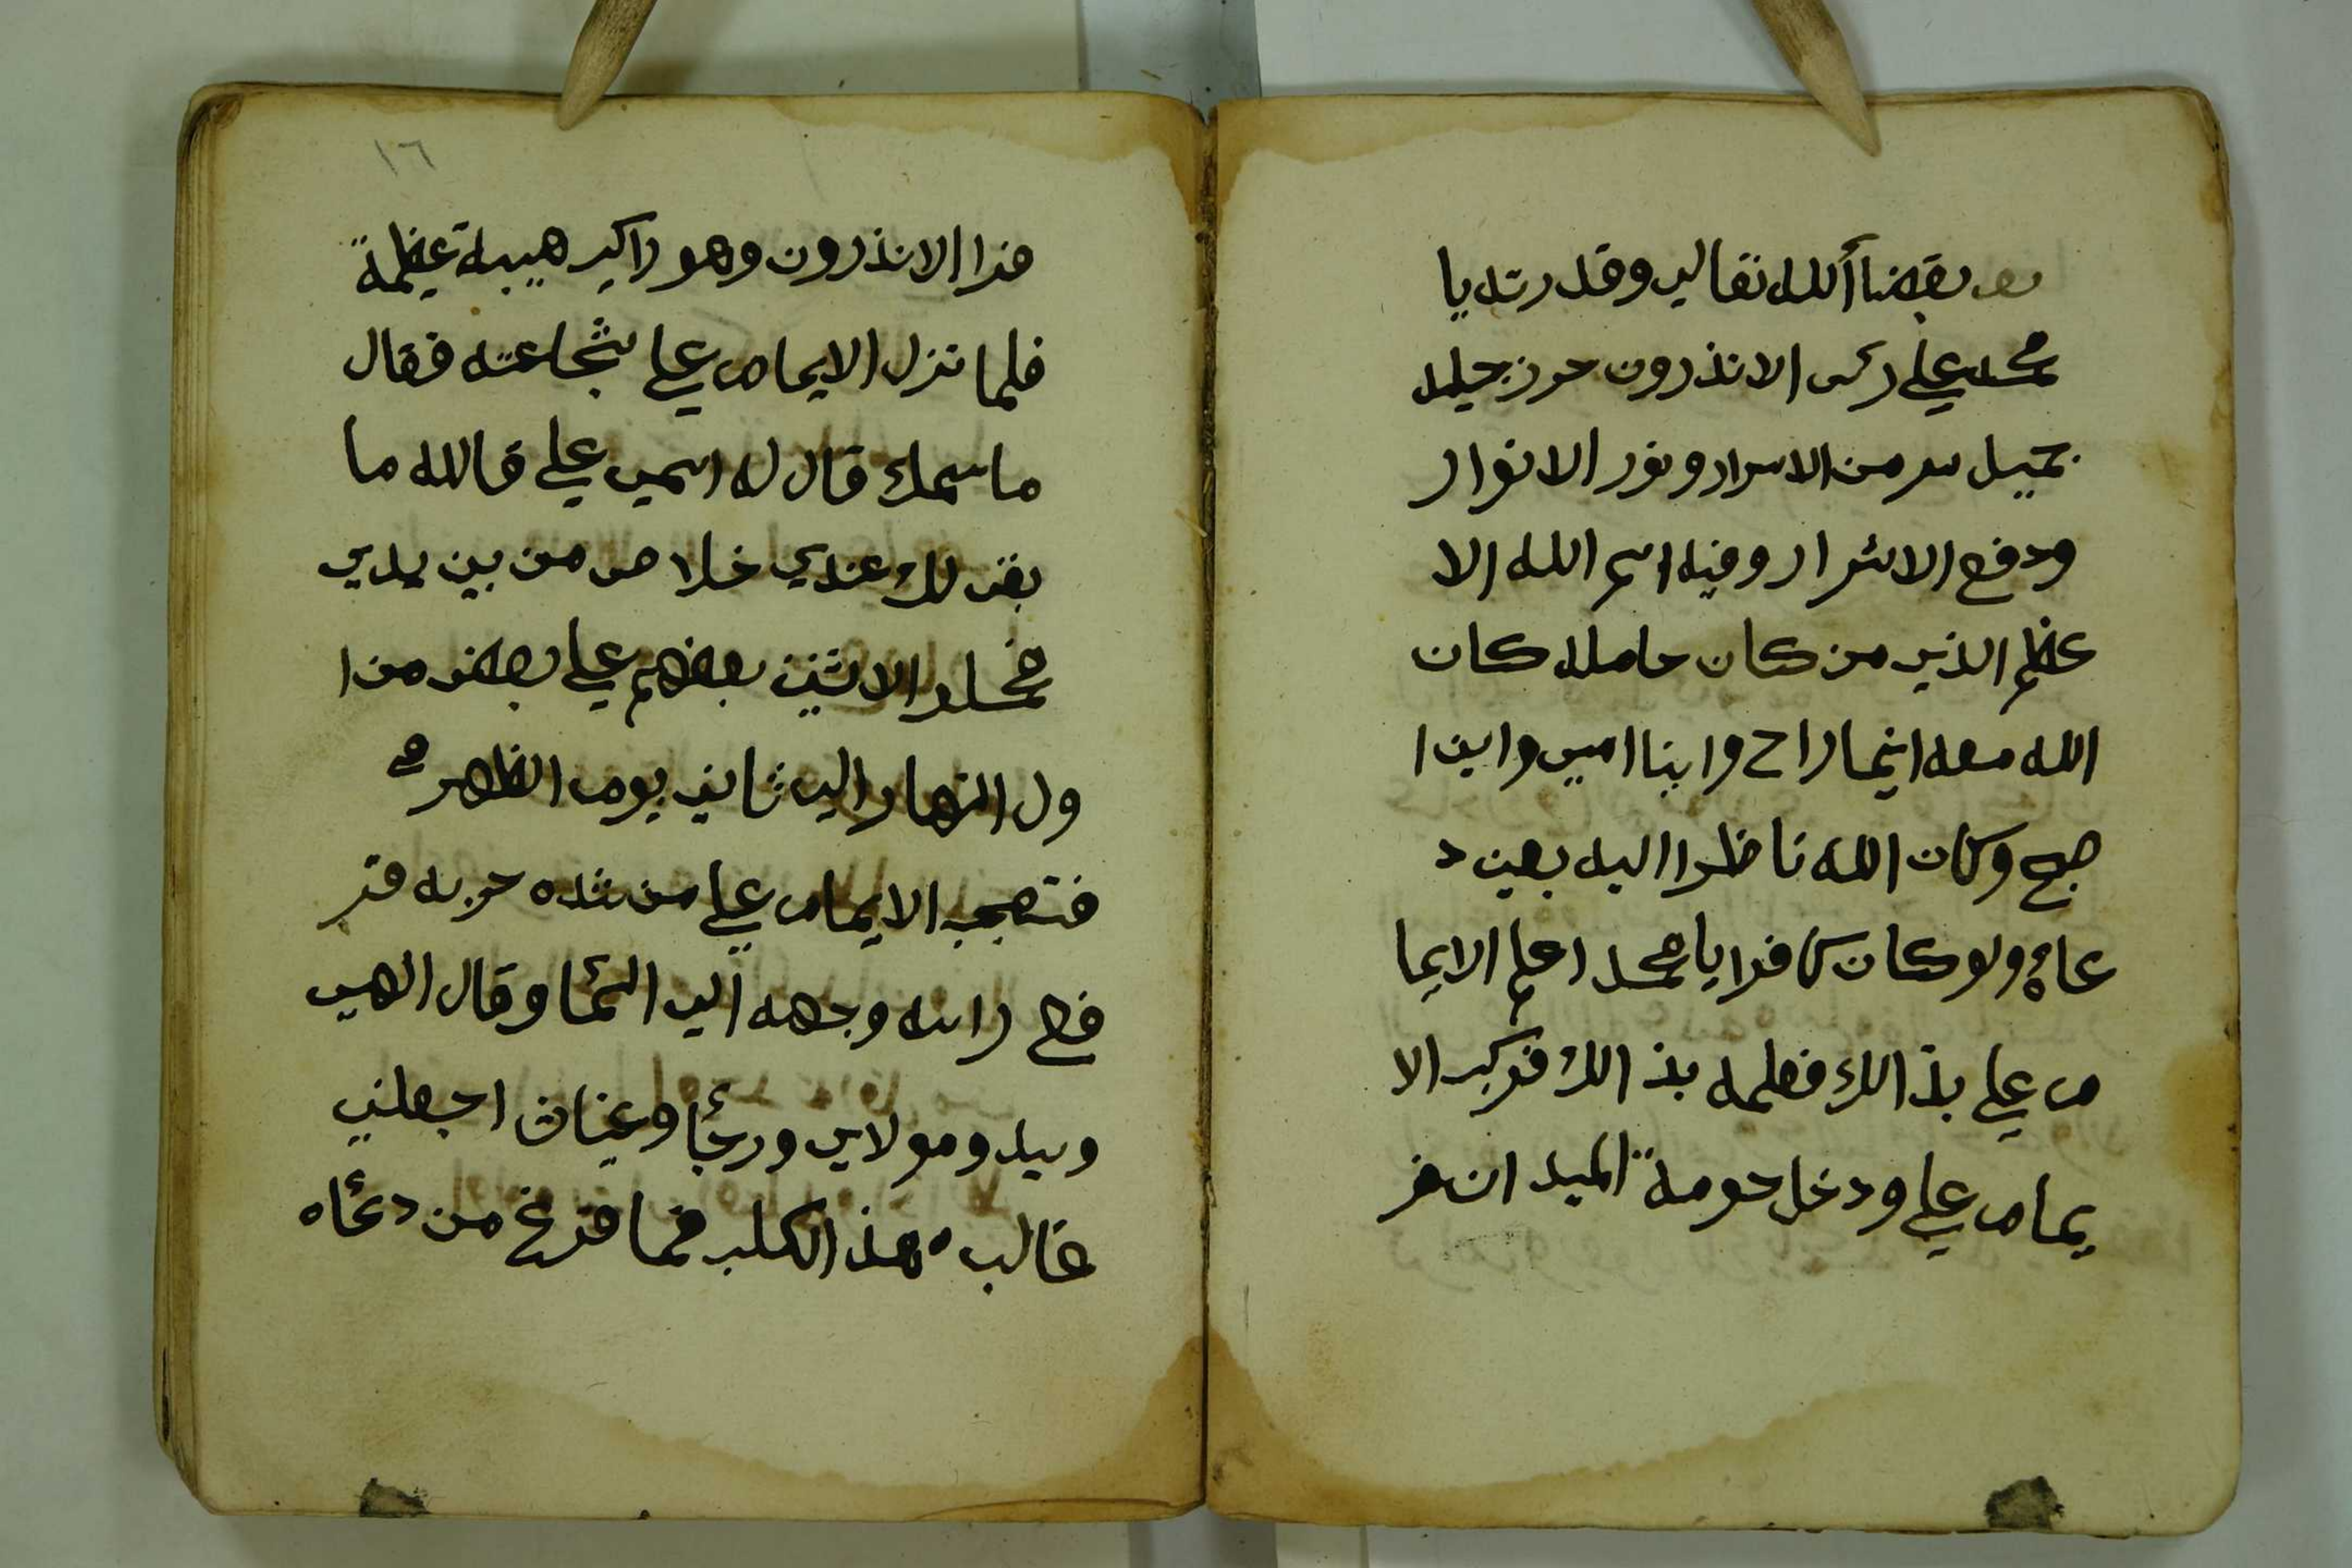 بقضاأ الله تعالي وقدرته يا
محمد علي رئس الاندرون حرز جليل
جميل سر من الاسرار ونور الانوار
ودفع الاشرار وفيه اسم الله الا
عظم الذي من كان حامله كان
الله معه اينما راح واينا امسي واين ا
صبح وكان الله ناظرا اليه بعين د
عاه ولو كان كافرا يا محمد اعلم الايما
م علي بذالك فعلمه بذالك فركب الا
يمام علي ودخل حومة الميدان فر
١٦
فرا الانذرون وهو راكب هيبة عظيمة
فلما نزل الايمام علي شجاعته فقال
ماسمك قال له اسمي علي قالله ما
بقي لك عندي خلاص من بين يدي
فحملو الاثنين بعضهم علي بعض من ا
ول النهار الي ثاني يوم الظهر
فتعجب الايمام علي من شده حربه فتر
فع راسه وجهه الي السما وقال الهي
وسيد ومولاي ورجأ وغيثان اجعلني
غالب هذ الكلب فما فرغ من دعاه